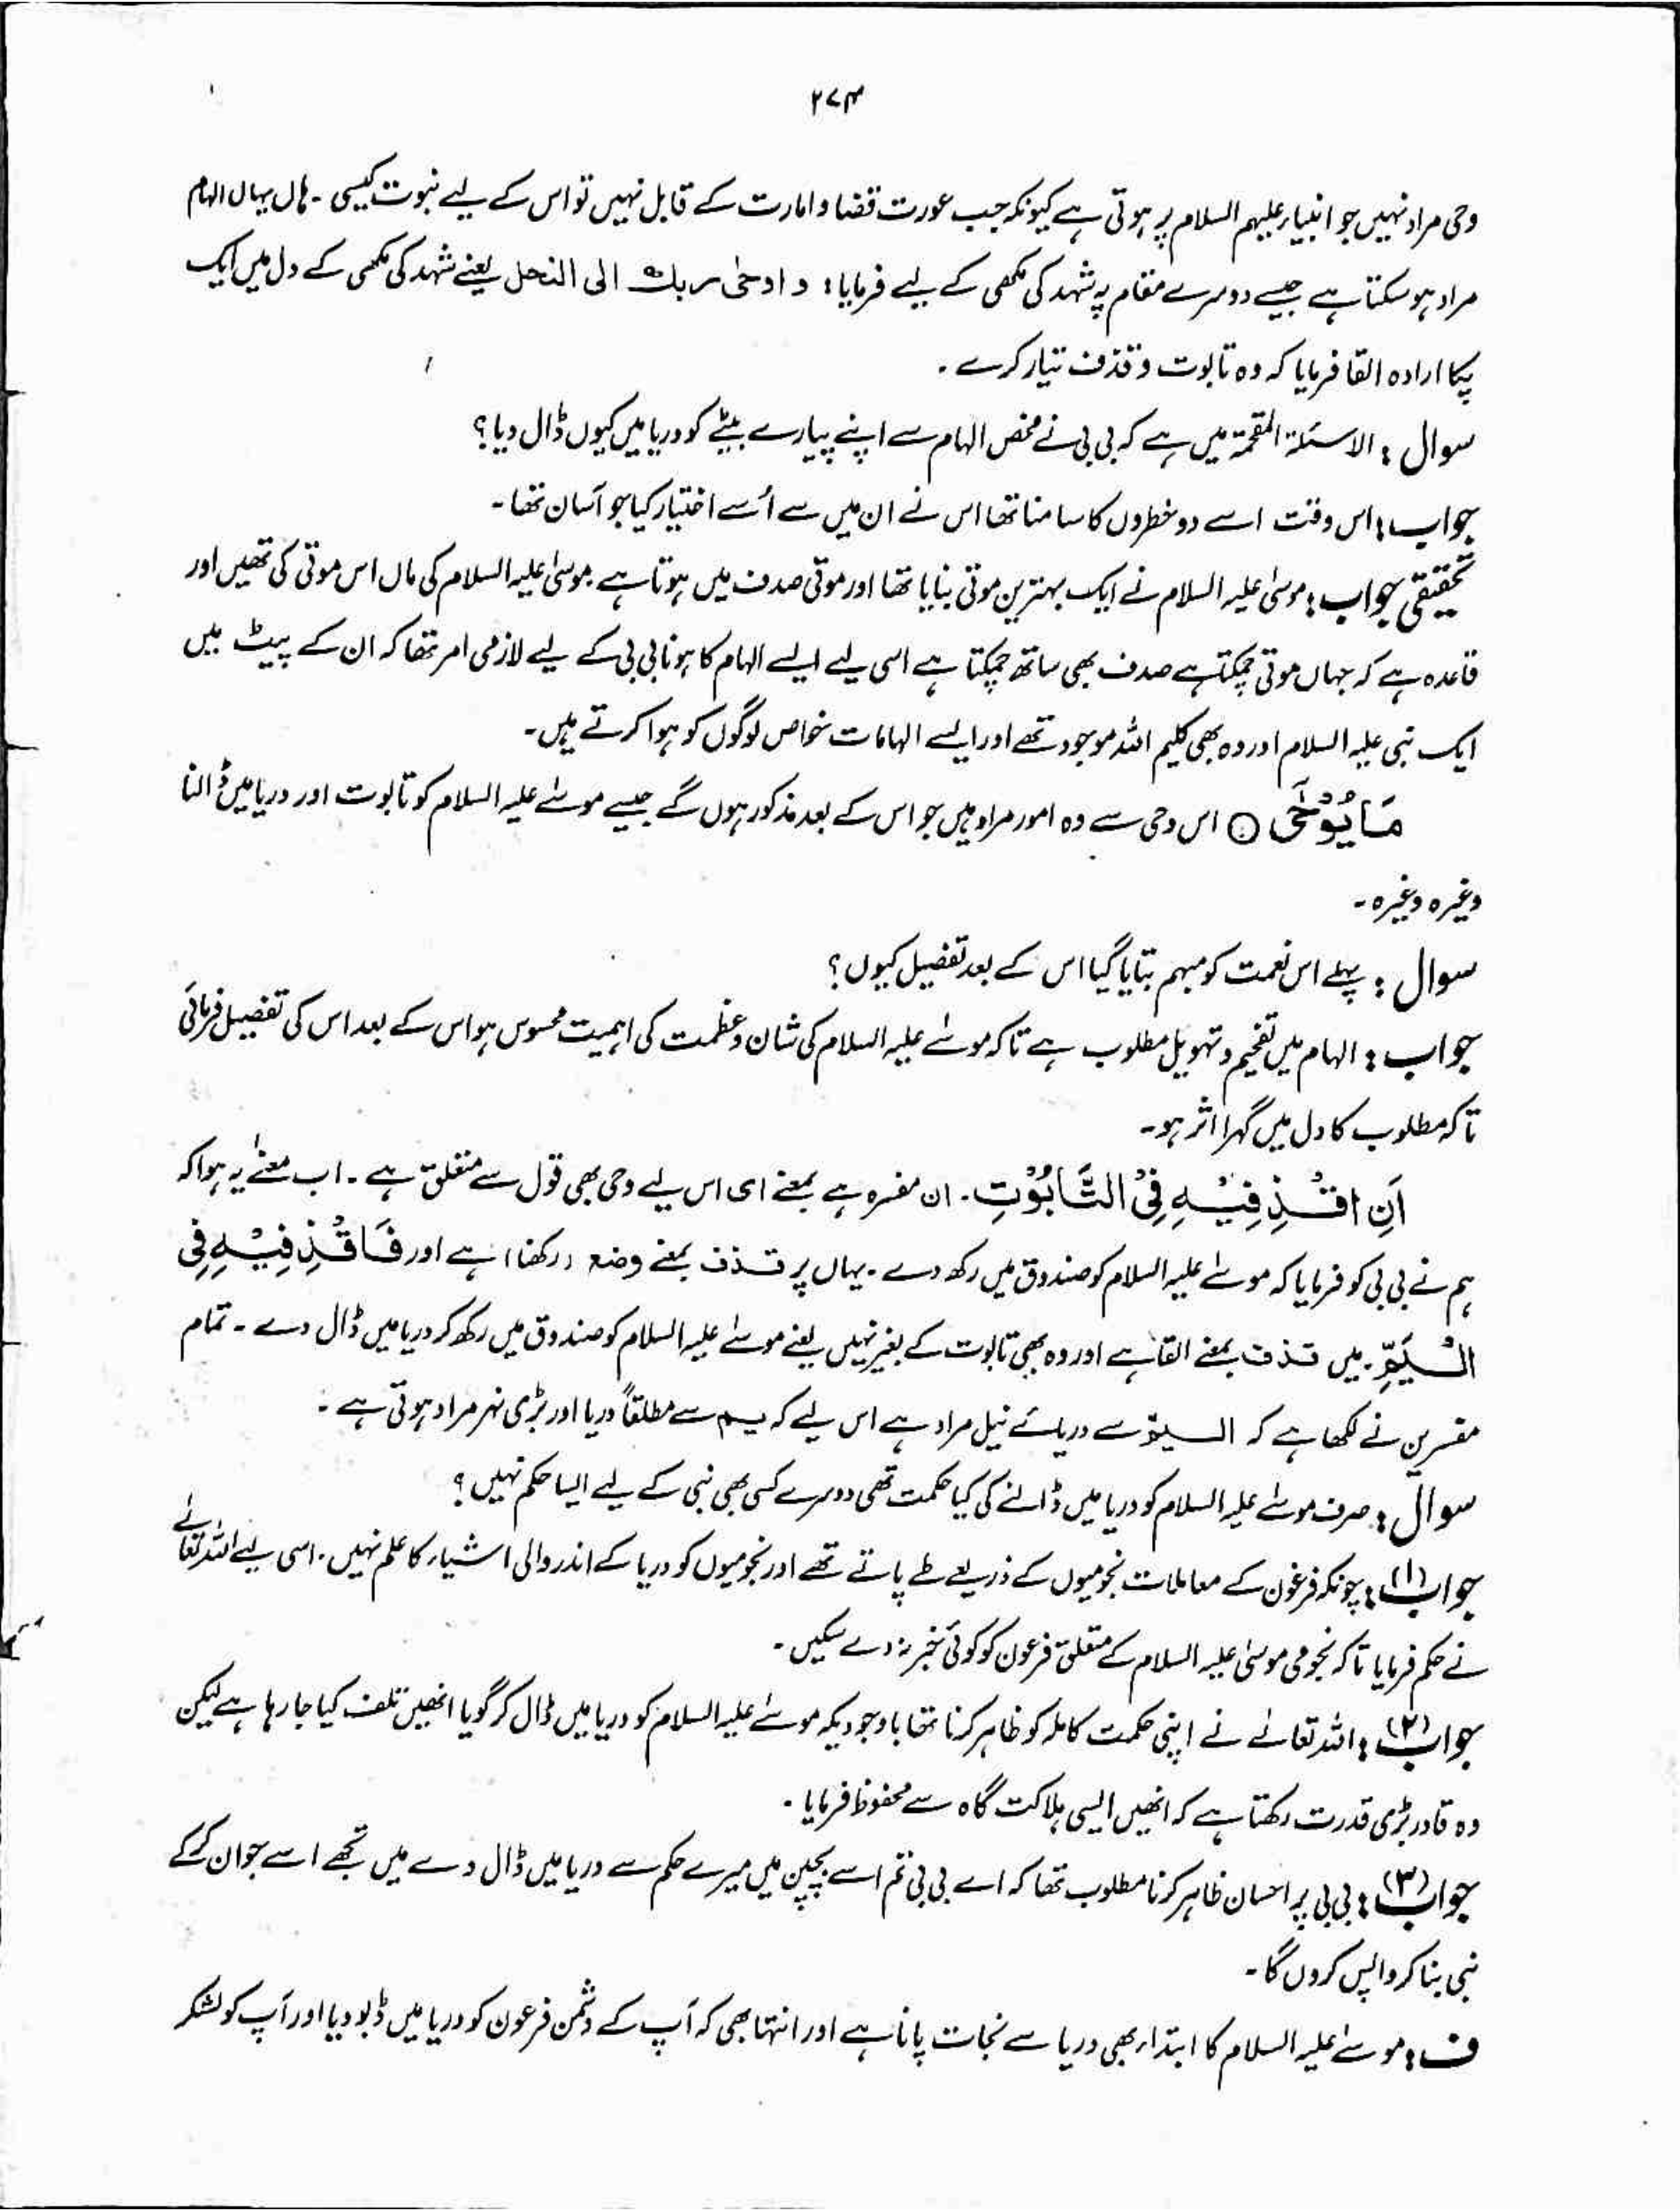 ۲۷۴
وحی مراد نہیں جو انبیاء علیہم السلام پر ہوتی ہے کیونکہ جب عورت قضا و امارت کے قابل نہیں تو اس کے لیے نبوت کیسی ۔ ہاں یہاں الہام
مراد ہو سکتا ہے جیسے دوسرے مقام پہ شہد کی مکھی کے لیے فرمایا : و اوحیٰ ربك الی النحل یعنے شہد کی مکھی کے دل میں ایک
پکا ارادہ القا فرمایا کہ وہ تابوت و قذف تیار کرے ۔
سوال : الاسئلۃ المقحمۃ میں ہے کہ بی بی نے محض الہام سے اپنے پیارے بیٹے کو دریا میں کیوں ڈال دیا ؟
جواب : اس وقت اسے دو خطروں کا سامنا تھا اس نے ان میں سے اُسے اختیار کیا جو آسان تھا ۔
تحقیقی جواب : موسیٰ علیہ السلام نے ایک بہترین موتی بنایا تھا اور موتی صدف میں ہوتا ہے موسیٰ علیہ السلام کی ماں اس موتی کی تھیں اور
قاعدہ ہے کہ جہاں موتی چمکتا ہے صدف بھی ساتھ چمکتا ہے اسی لیے ایسے الہام کا ہونا بی بی کے لیے لازمی امر تھا کہ ان کے پیٹ میں
ایک نبی علیہ السلام اور وہ بھی کلیم اللہ موجود تھے اور ایسے الہامات خواص لوگوں کو ہوا کرتے ہیں ۔
مَا يُوْحٰٓى ○ اس وحی سے وہ امور مراد ہیں جو اس کے بعد مذکور ہوں گے جیسے موسٰے علیہ السلام کو تابوت اور دریا میں ڈالنا
وغیرہ وغیرہ ۔
سوال : پہلے اس نعمت کو مبہم بتایا گیا اس کے بعد تفصیل کیوں ؟
جواب : الہام میں تفخیم و تہویل مطلوب ہے تاکہ موسٰے علیہ السلام کی شان و عظمت کی اہمیت محسوس ہو اس کے بعد اس کی تفصیل فرمائی
تاکہ مطلوب کا دل میں گہرا اثر ہو ۔
اَنِ اقْذِفِيْهِ فِى التَّابُوْتِ ۔ ان مفسرہ ہے بمعنے ای اس لیے وحی بھی قول سے متعلق ہے ۔ اب معنٰے یہ ہوا کہ
ہم نے بی بی کو فرمایا کہ موسٰے علیہ السلام کو صندوق میں رکھ دے ۔ یہاں پر قذف بمعنے وضع (رکھنا) ہے اور فَاقْذِفِيْهِ فِى
الْيَمِّ ۔ میں قذف بمعنے القا ہے اور وہ بھی تابوت کے بغیر نہیں یعنے موسٰے علیہ السلام کو صندوق میں رکھ کر دریا میں ڈال دے ۔ تمام
مفسرین نے لکھا ہے کہ الیم سے دریائے نیل مراد ہے اس لیے کہ یم سے مطلقاً دریا اور بڑی نہر مراد ہوتی ہے :
سوال : صرف موسٰے علیہ السلام کو دریا میں ڈالنے کی کیا حکمت تھی دوسرے کسی بھی نبی کے لیے ایسا حکم نہیں ؟
جواب (۱) : چونکہ فرعون کے معاملات نجومیوں کے ذریعے طے پاتے تھے اور نجومیوں کو دریا کے اندر والی اشیاء کا علم نہیں ۔ اسی لیے اللہ تعالٰے
نے حکم فرمایا تاکہ نجومی موسیٰ علیہ السلام کے متعلق فرعون کو کوئی خبر نہ دے سکیں ۔
جواب (۲) : اللہ تعالٰے نے اپنی حکمت کاملہ کو ظاہر کرنا تھا باوجودیکہ موسٰے علیہ السلام کو دریا میں ڈال کر گویا انھیں تلف کیا جا رہا ہے لیکن
وہ قادر بڑی قدرت رکھتا ہے کہ انھیں ایسی ہلاکت گاہ سے محفوظ فرمایا ۔
جواب (۳) : بی بی پر احسان ظاہر کرنا مطلوب تھا کہ اے بی بی تم اسے بچپن میں میرے حکم سے دریا میں ڈال دے میں تجھے اسے جوان کرکے
نبی بنا کر واپس کروں گا ۔
ف : موسٰے علیہ السلام کا ابتداء بھی دریا سے نجات پانا ہے اور انتہا بھی کہ آپ کے دشمن فرعون کو دریا میں ڈبو دیا اور آپ کو لشکر